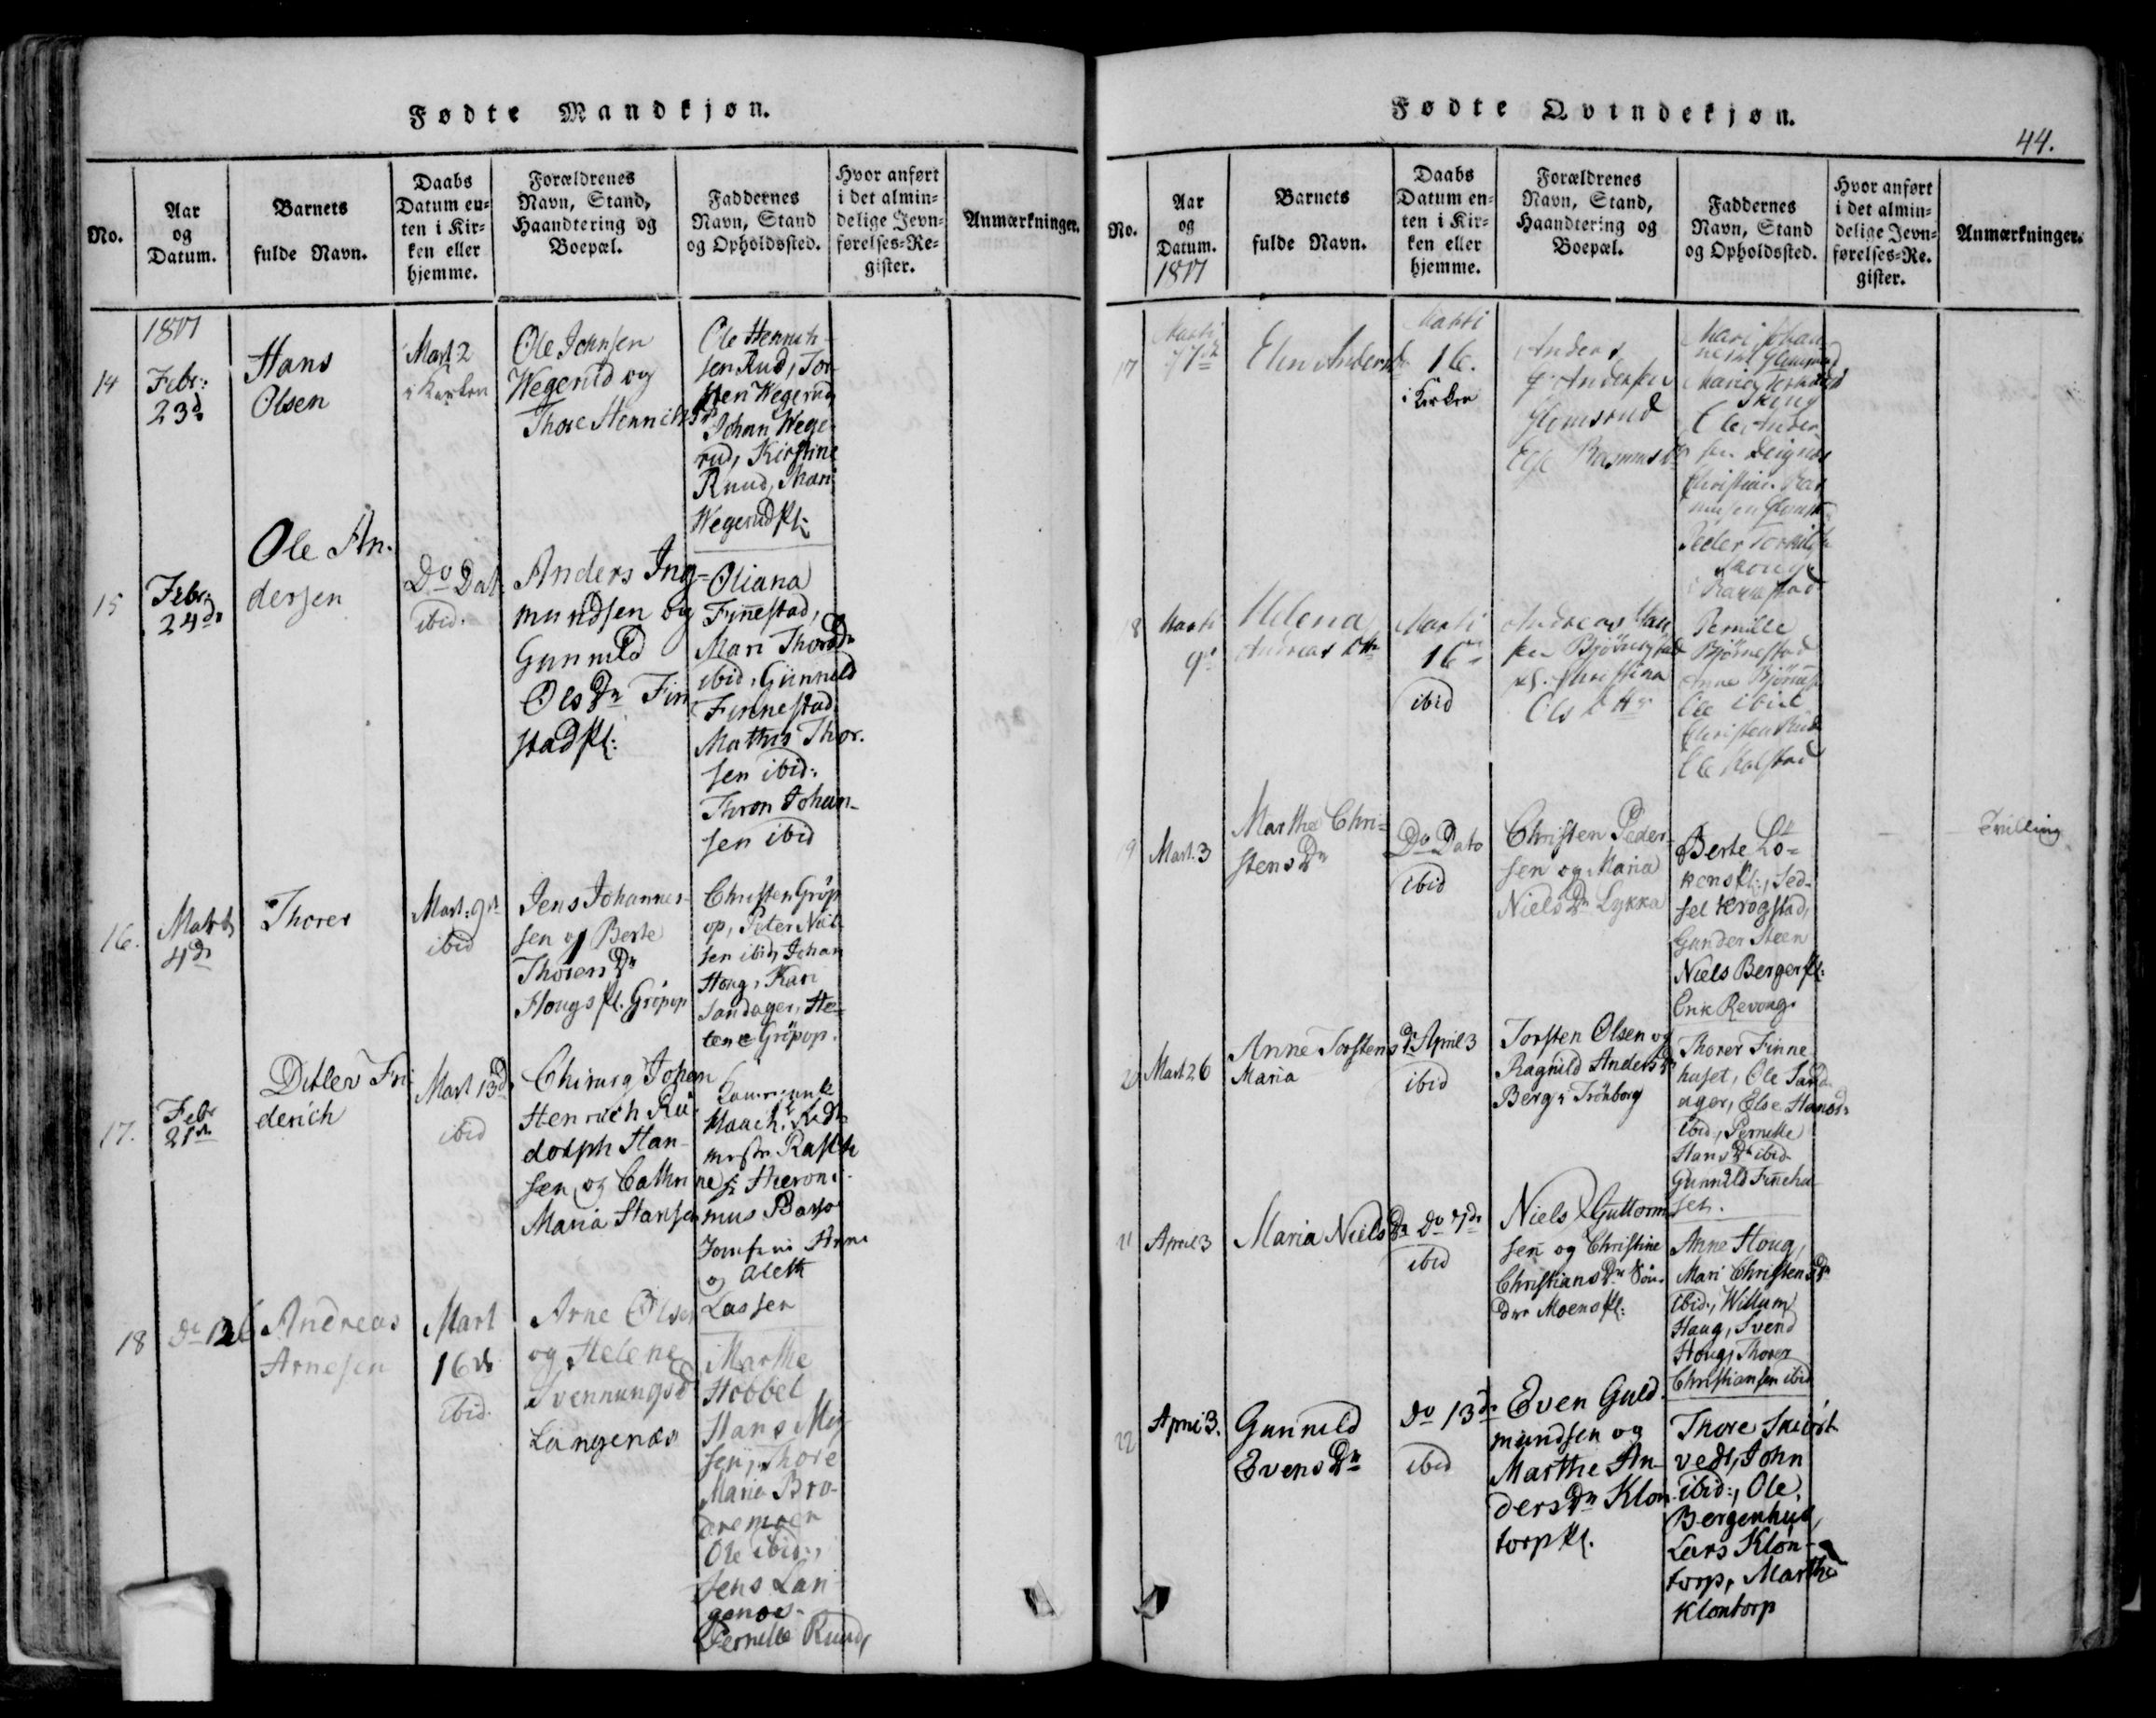 Fødte Mandkjøn.
No.
Aar
og
Datum.
Barnets
fulde Navn.
Daabs
Datum en-
ten i Kir-
ken eller
hjemme.
Forældrenes
Navn, Stand,
Haandtering og
Boepæl.
Faddernes
Navn, Stand
og Opholdssted.
Hvor anført
i det almin-
delige Jevn-
førelses-Re-
gister.
Anmærkninger.
14
1817
Febr:
23d
Hans
Olsen
Mart 2
i Kirken
Ole Johnsen
Wegerud og
Thore Henrichs
Ole Henrich
sen Rud, Tor
sten Wegerud
Johan Wege
rud, Kirstine
Ruud, Mari
Wegerud pl:
15
Febr:
24d
Ole An.
dersen
Do Dat
ibid.
Anders Ing-
mundsen og
Gunnild
Ols Dr Fin
stad pl:
Oliana
Finnestad,
Mari Thors Dr
ibid, Gunnild
Finnestad
Mathis Thor.
sen ibid:
Thron Johan-
sen ibid
16.
Marti
4d
Thorer
Mart: 9d
ibid
Jens Johannes-
sen og Berte
Thorers Dr
Hougs pl. Gröpop
Christen Gröp
op, Peter Niel
sen ibid, Johan
Houg, Kari
Sandager, He-
lene Gröpop.
17.
Febr
21d
Ditlev Fri
derich
Mart 13d
ibid
Chirurg Johan
Henrich Ru
dolph Han-
sen, og Cathri
Maria Hansen
ne
Hieroni
mus Basso
Jomfrue Anne
og Aleth
Lassen
18
Do 12
Andreas
Arnesen
Mart
16d
ibid.
Arne Olsen
og Helene
Svennungsd
Langenæs
Marthe
Hobbel
Hans
sen, Thore
Maria Bro-
dremoen
Ole ibid.,
Jens Lan
genæs
Pernille Ruud,
Fødte Qvindekjøn.
44.
No.
Aar
og
Datum.
1817
Barnets
fulde Navn.
Daabs
Datum en-
ten i Kir-
ken eller
hjemme.
Forældrenes
Navn, Stand,
Haandtering og
Boepæl.
Faddernes
Navn, Stand
og Opholdssted.
Hvor anført
i det almin-
delige Jevn-
førelses-Re-
gister.
Anmærkninger.
17
Marti
Elen Anders
Marti
16.
i Kirken
Anders
Andersen
Glomsrud
Else Rasmusd
Mari Johan
Ole Ander
sen
Christine Ras
musen
Peder
18
Marti
9d
Helena
Andreas Dtr
Marti
16
ibid
Andreas Han
sen Björnestad
pl. Christina
Ols Dtr
Pernille
Björnestad
Anne
Ole ibid
Christen Rud
Ole Kolstad
19
Mart. 3
Marthe Chri-
stens Dr
Do Dato
ibid
Christen Peder-
sen og Maria
Niels Dr Lykka
Berte Lö-
kens pl:, Sed-
sel Krogstad,
Gunder Steen
Niels Berger pl:
Erik Revoug.
20
Mart 26
Anne Torstens Dr
Maria
April 3
ibid
Torsten Olsen og
Ragnild Anders Dr
Berg i Trönborg
Thorer Finne
huset, Ole Sand
ager, Else Hansd
ibid, Pernille
Hans Dr ibid
Gunnild Finnehu
set.
21
April 3
Maria Niels Dr
Do 7d
ibid
Niels Guttorm
sen og Christine
Christians Dr Sön-
dre Moens pl:
Anne Houg,
Mari Christens Dr
ibid., Willum
Haug, Svend
Houg, Thorer
Christiansen ibid
22
April 3.
Gunnild
Evens Dr
Do 13d
ibid
Even Guld-
mundsen og
Marthe An-
ders Dr Klon
torp pl.
Thore
vedt, John
ibid:, Ole
Bergenhus,
Lars Klon-
torp, Marthe
Klontorp
Tvilling